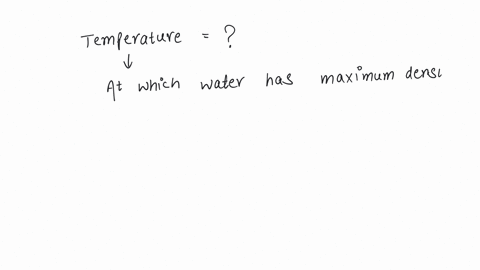 Temperature = ?
↓
At which water has maximum densi